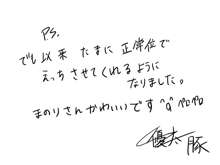 P.S.
でし以来 たまに 正常位で
えっち させてくれるように
なりました。
まのりさん かわいいです ^q^ ペロペロ
優太
豚